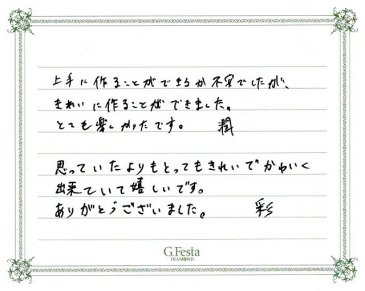 上手に作ることができるか不安でしたが、
きれいに作ることができました。
とても楽しかったです。 潤
思っていたよりもとってもきれいでかわいく
出来ていて嬉しいです。
ありがとうございました。 彩
G.Festa
DIAMOND